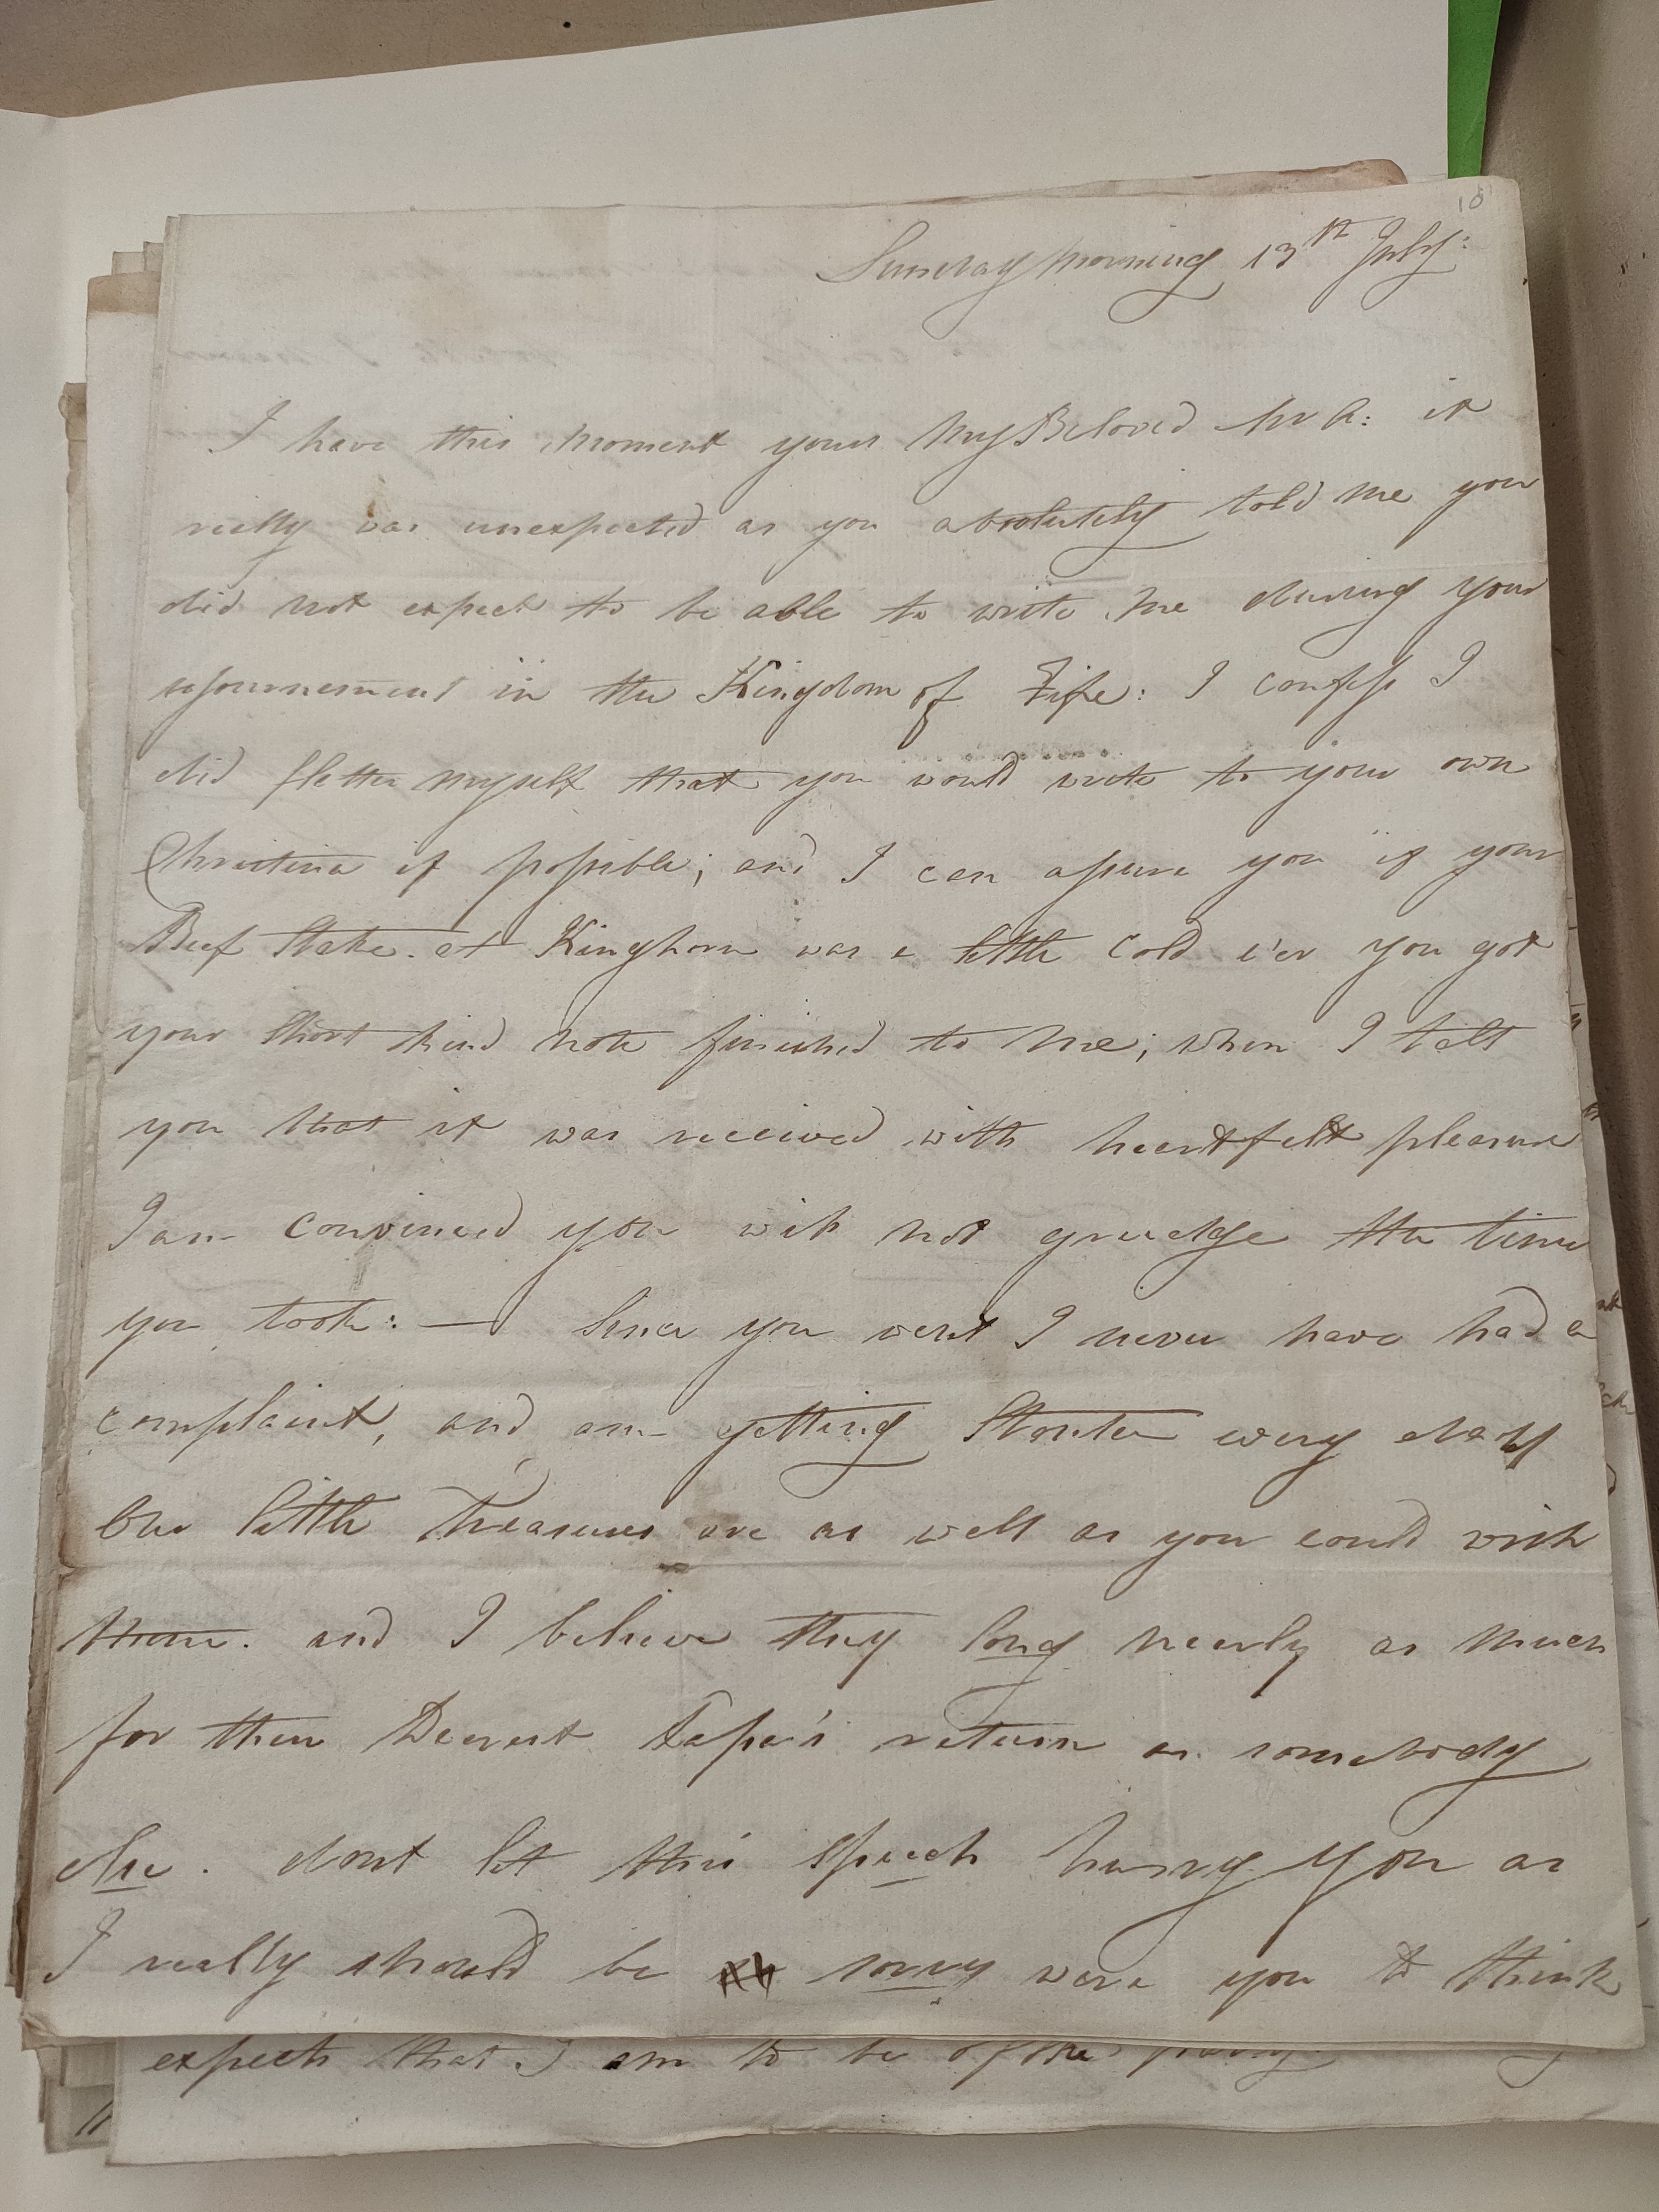 10
Sunday Morning 13th July:
I have this moment yours My Beloved Mr A: it
really was unexpected as you absolutely told me you
did not expect to be able to write me during your
sejournement in the Kingdom of Fife: I confess I
did flatter myself that you would write to your own
Christina if possible; and I can assure you if your
Beef Stake at Kinghorn was a little cold e'er you got
your short kind note finished to me; when I tell
you that it was received with heartfelt pleasure
I am convinced you will not grudge the time
you took: — Since you went I never have had a
complaint, and am getting Stouter every day
Our little Treasures are as well as you could wish
them. and I believe they long nearly as much
for their Dearest Papa's return as somebody
else. dont let this speech hurry you as
I really should be sorry were you to think
expects that I am to be of the party